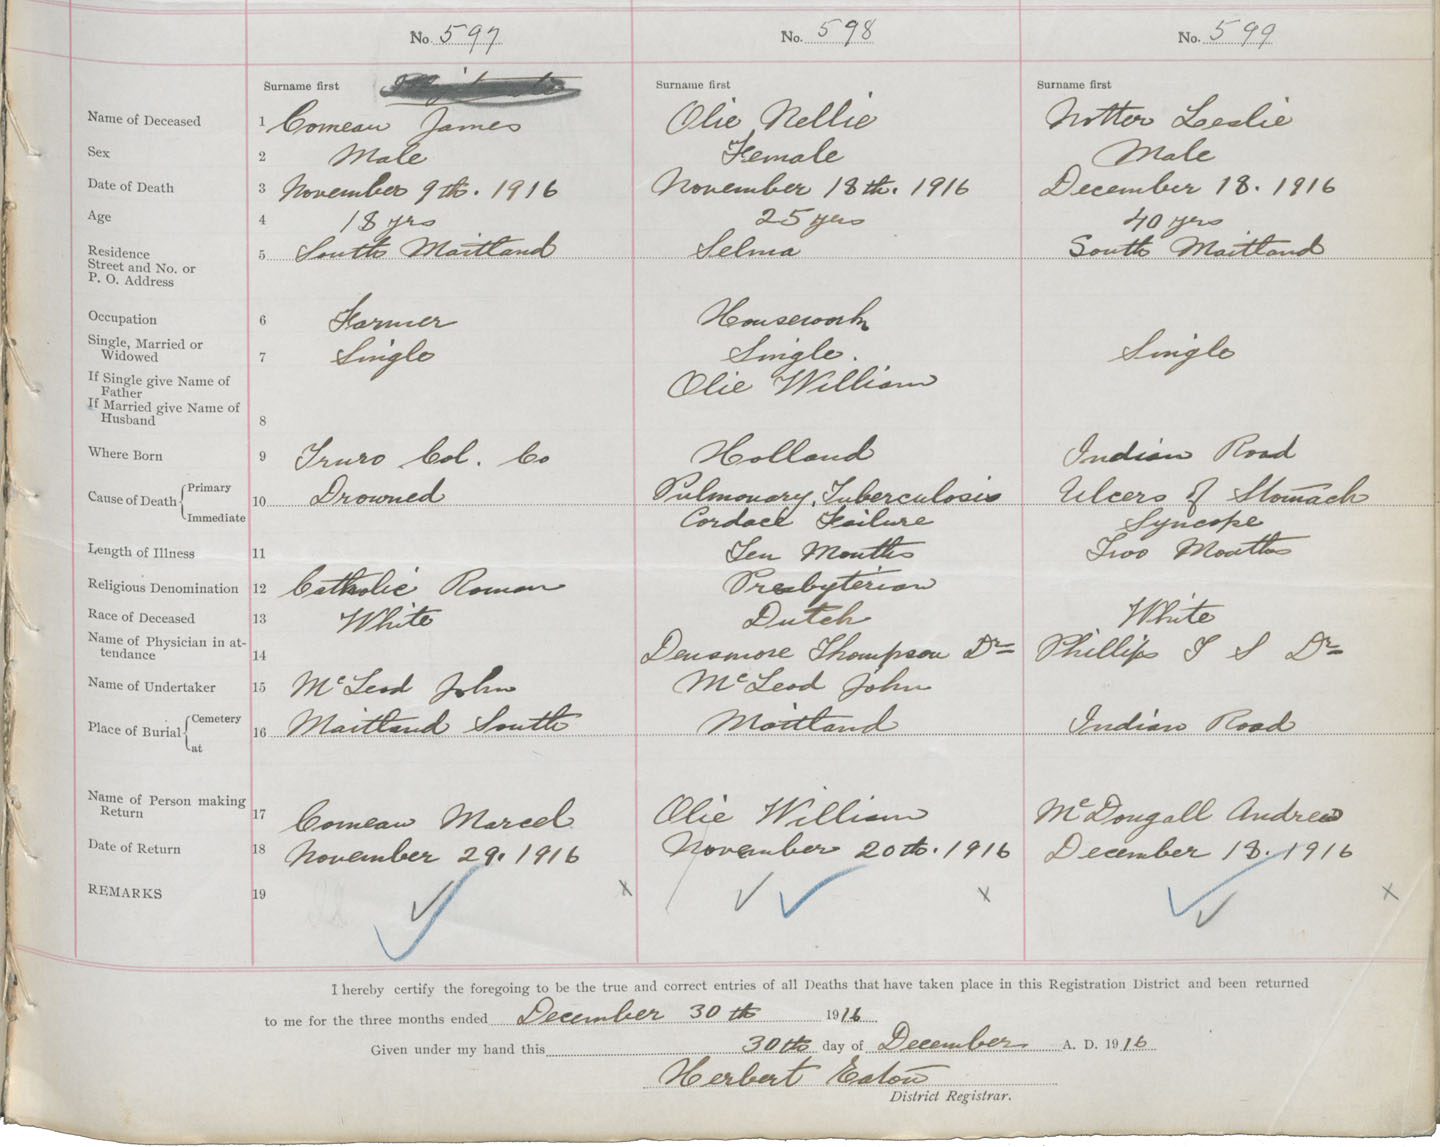 No. 597 No. 598 No. 599
Surname first Surname first Surname first
Name of Deceased 1 Comeau James Olie Nellie Notter Leslie
Sex 2 Male Female Male
Date of Death 3 November 9th. 1916 November 18th. 1916 December 18. 1916
Age 4 18 yrs 25 yrs 40 yrs
Residence
Street and No. or
P. O. Address 5 South Maitland Selma South Maitland
Occupation 6 Farmer Housework
Single, Married or
Widowed 7 Single Single. Single
If Single give Name of
Father Olie William
If Married give Name of
Husband 8
Where Born 9 Truro Col. Co Holland Indian Road
Cause of Death { Primary 10 Drowned Pulmonary Tuberculosis Ulcers of Stomach
Immediate Cordace Failure Syncope
Length of Illness 11 Ten Months Two Months
Religious Denomination 12 Catholic Roman Presbyterian
Race of Deceased 13 White Dutch White
Name of Physician in at-
tendance 14 Densmore Thompson Dr Phillips T S Dr
Name of Undertaker 15 McLeod John McLeod John
Place of Burial { Cemetery 16 Maitland South Maitland Indian Road
at
Name of Person making
Return 17 Comeau Marcel Olie William McDougall Andrew
Date of Return 18 November 29. 1916 November 20th. 1916 December 18. 1916
REMARKS 19 x x x
I hereby certify the foregoing to be the true and correct entries of all Deaths that have taken place in this Registration District and been returned
to me for the three months ended December 30th 1916
Given under my hand this 30th day of December A. D. 1916
Herbert Eaton
District Registrar.